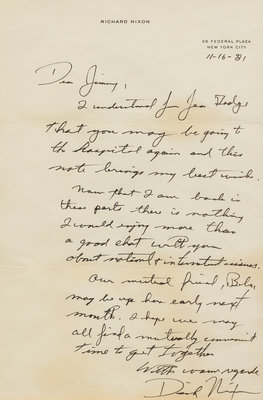 RICHARD NIXON
26 FEDERAL PLAZA
NEW YORK CITY
11-16-81
Dear Jimmy,
I understand from
that you may be going to
the hospital again and this
note brings my best wishes.
Now that I am back in
these parts there is nothing
I would enjoy more than
a good chat with you
about national & international issues.
Our mutual friend, Bebe,
may be up here early next
month. I hope we may
all find a mutually convenient
time to get together
With warm regards
Dick Nixon